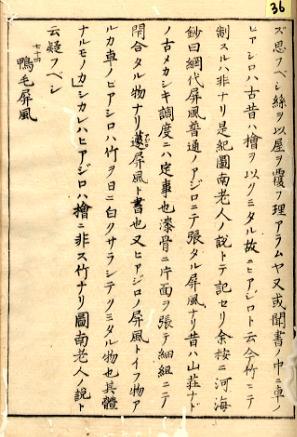 36
ズ思フベシ絲ヲ以屋ヲ覆フ理アラムヤ又或聞書ノ中ニ車ノ
ヒアジロハ古昔ハ檜ヲ以クミタル故ニヒアジロト云今竹ニテ
制スルハ非ナリ是紀圖南老人ノ説トテ記セリ余桉ニ河海
鈔曰網代屏風普通ノアジロニテ張タル屏風ナリ昔ハ山荘ナド
ノ古メカシキ調度ニハ定事也漆骨ニ片面ヲ張テ細組ニテ
閉合タル物ナリ籧屏風ト書也又ヒアジロノ屏風トイフ物ア
ルカ車ノヒアジロハ竹ヲ日ニ白クサラシテクミタル物也其體
ナルモノカ」シカレハヒアジロハ檜ニ非ス竹ナリ圖南老人ノ説ト
云疑フベシ
七十四
鴨毛屏風